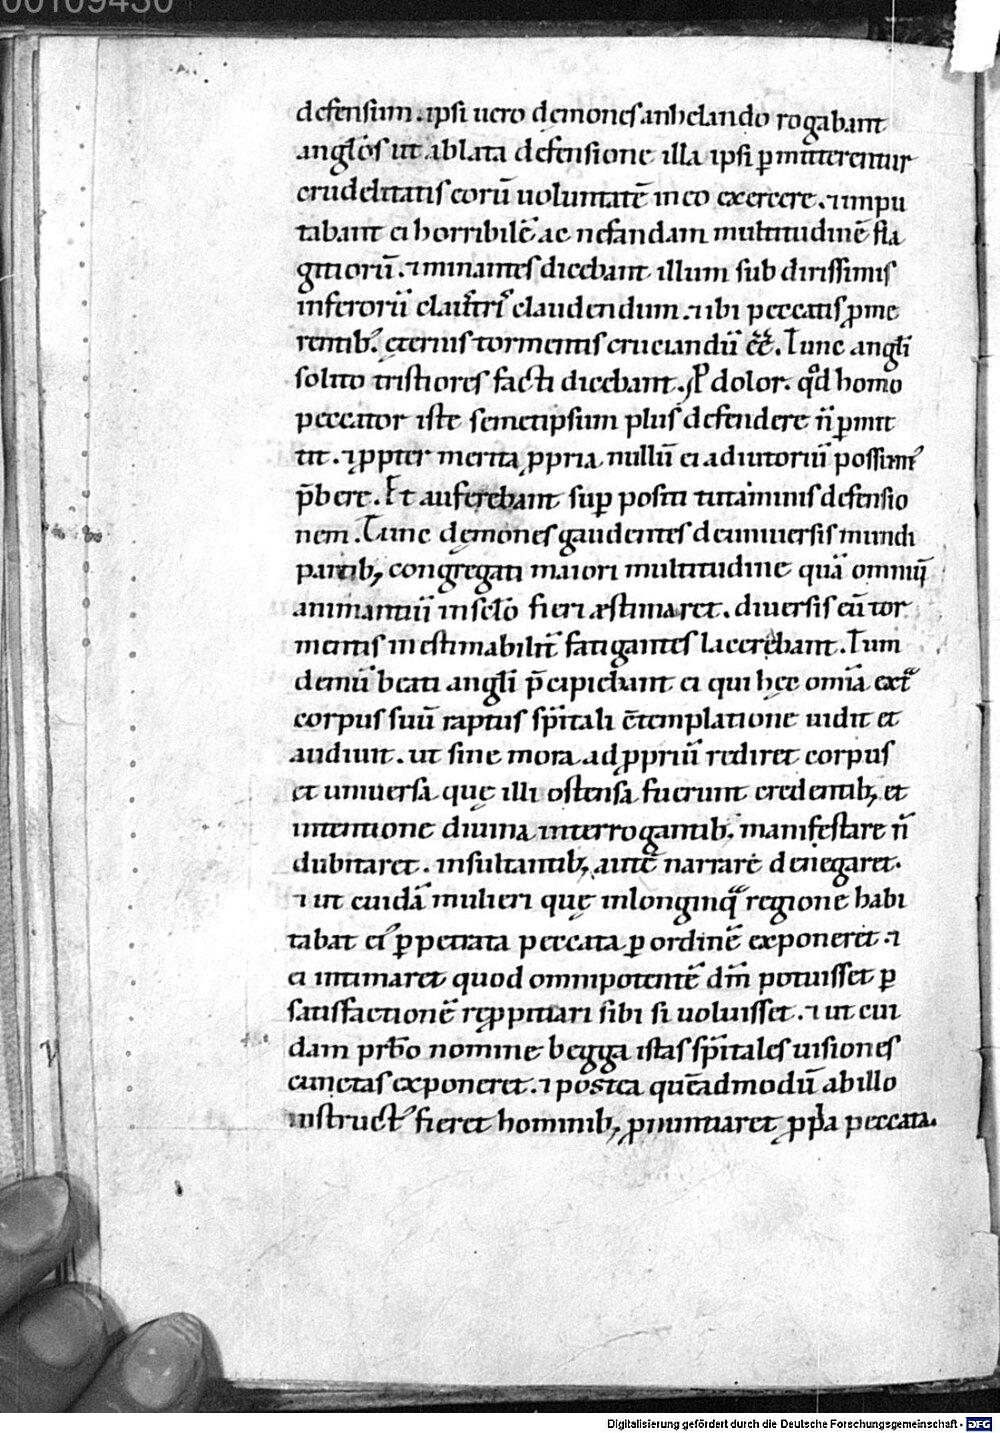 00109430
defensum. ipsi uero dęmones anhelando rogabant
angl̄os ut ablata defensione illa ipsi p̱mitterentur
crudelitatis eorū uoluntatē in eo exercere. ⁊ impu
tabant ei horribilē ac nefandam multitudinē fla
gitiorū. ⁊ minantes dicebant illum sub dirissimis
inferorū claustris claudendum. ⁊ ibi peccatis ꝓme
rentib; ęternis tormentis cruciandū eē. Tunc angl̄i
solito tristiores facti dicebant. P dolor. qd̄ homo
peccator iste semetipsum plus defendere n̄ p̱mit
tit. ⁊ ꝓpter merita ꝓpria nullū ei adiutoriū possum᾽
p̄bere. Et auferebant sup̱positi tutaminis defensio
nem. Tunc dęmones gaudentes de uniuersis mundi
partib; congregati maiori multitudine quā omniū
animantiū in sclo̅ fieri æstimaret. diuersis eū tor
mentis inestimabilit̄ fatigantes lacerębant. Tum
demū beati angl̄i p̄cipiebant ei qui hęc om̄ia ext̄
corpus suū raptus sp̄itali c̄templatione uidit et
audiuit. ut sine mora ad ꝓpriū rediret corpus
et uniuersa quę illi ostensa fuerunt credentib; et
intentione diuina interrogantib; manifestare n̄
dubitaret. insultantib; autē narrare denegaret.
⁊ ut cuidā mulieri quę in longinq̄ regione habi
tabat ei᾽ p̱petrata peccata p̱ ordinē exponeret. ⁊
ei intimaret quod omnipotentē dm̄ potuisset p̱
satisfactionē repꝓpitiari sibi si uoluisset. ⁊ ut cui
dam prb̄o nomine begga istas sp̄itales uisiones
cunctas exponeret. ⁊ postea quēadmodū ab illo
instruct᾽ fieret hominib; ꝓnuntiaret ꝓp̄a peccata.
Digitalisierung gefördert durch die Deutsche Forschungsgemeinschaft - DFG